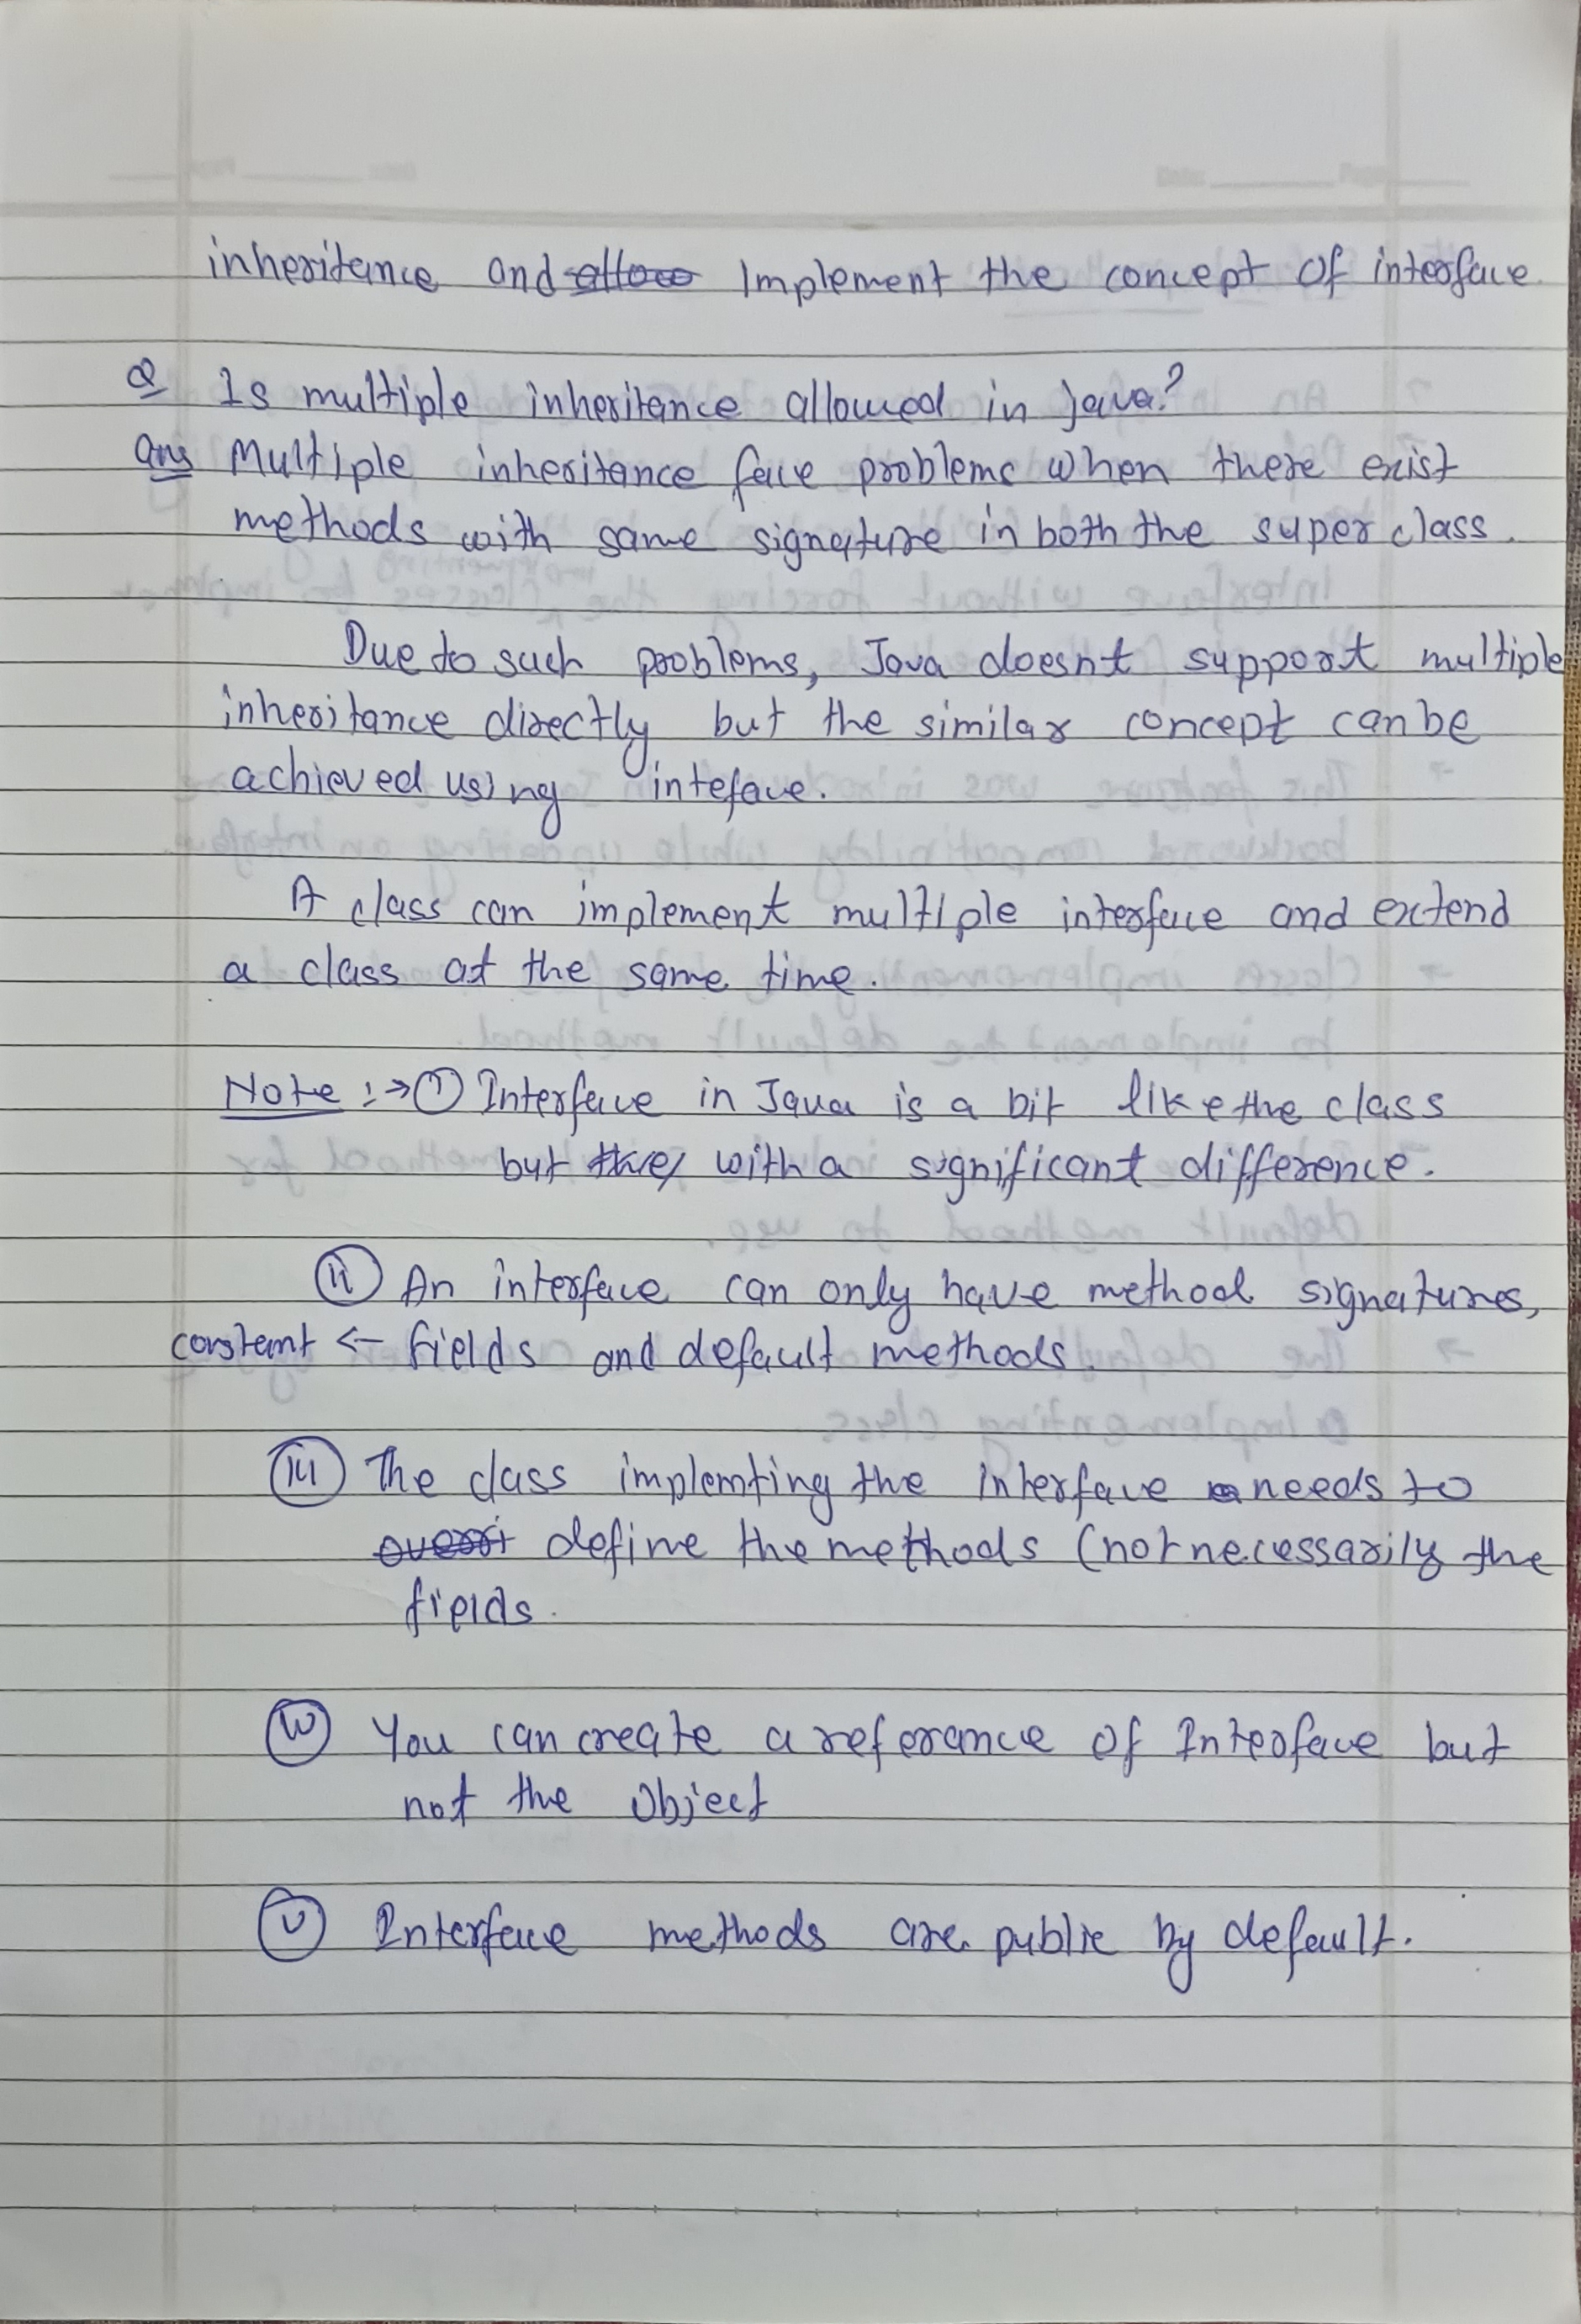 inheritance and allow Implement the concept of interface.
Q Is multiple inheritance allowed in java?
Ans Multiple inheritance face problems when there exist
methods with same signature in both the super class.
Due to such problems, Java doesnt support multiple
inheritance directly but the similar concept can be
achieved using inteface.
A class can implement multiple interface and extend
a class at the same time.
Note :→ ① Interface in Java is a bit like the class
but with a significant difference.
(ii) An interface can only have method signatures,
constant ← fields and default methods.
(iii) The class implemting the interface needs to
overri define the methods (not necessarily the
fields.
(iv) You can create a referance of Interface but
not the Object
(v) Interface methods are public by default.